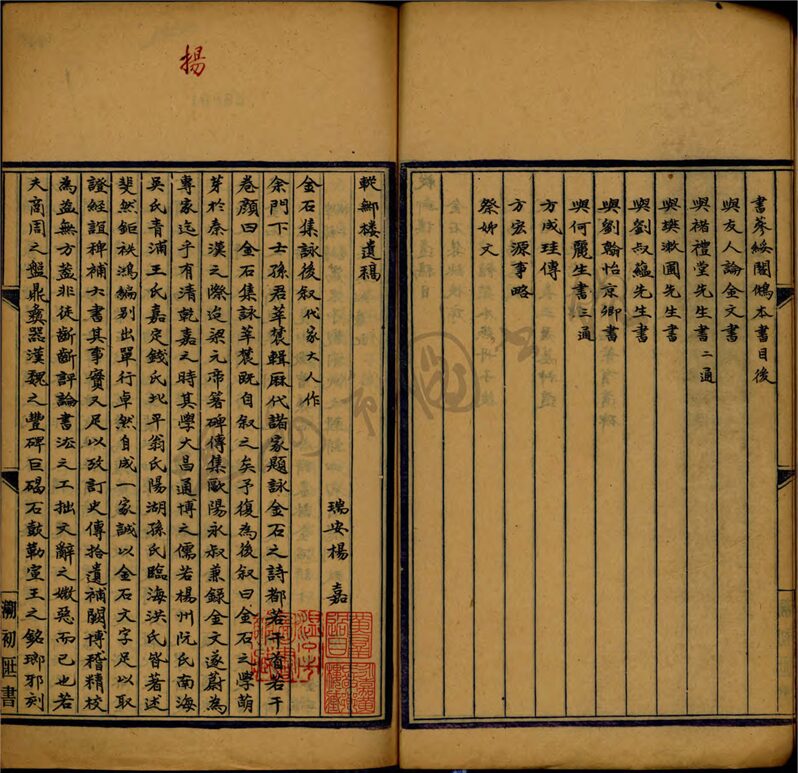 書蔘綏閣鴘本書目後
與友人論金文書
與楮禮堂先生書二通
與瑛潄圃先生書
與劉叔蘊先生書
與劉翰怡京卿書
與何麗生書三通
方成珪傳
方宏源事略
祭姊文
揚
䡮鄦樓遺稿
瑞安楊 嘉
金石集詠後叙代家大人作
余門下士孫君莘農輯厤代諸家題詠金石之詩都若干首若干
卷顏曰金石集詠莘農既自叙之矣予復為後叙曰金石之學萌
芽於秦漢之際迨梁元帝箸碑傳集歐陽永叔兼錄金文遂蔚為
專家迄乎有清乾嘉之時其學大昌通博之儒若楊州阮氏南海
吳氏青浦王氏嘉定錢氏北平翁氏陽湖孫氏臨海洪氏皆著述
斐然鉅袟鴻編別出單行卓然自成一家誠以金石文字足以取
證經誼稗補六書其事實又足以攷訂史傳拾遺補闕博稽精校
為益無方蓋非徒齗齗評論書㳒之工拙文辭之媺惡而已也若
夫商周之盤鼎彝器漢魏之豐碑巨碣石鼓勒宣王之銘瑯邪刻
瀫初㕓書